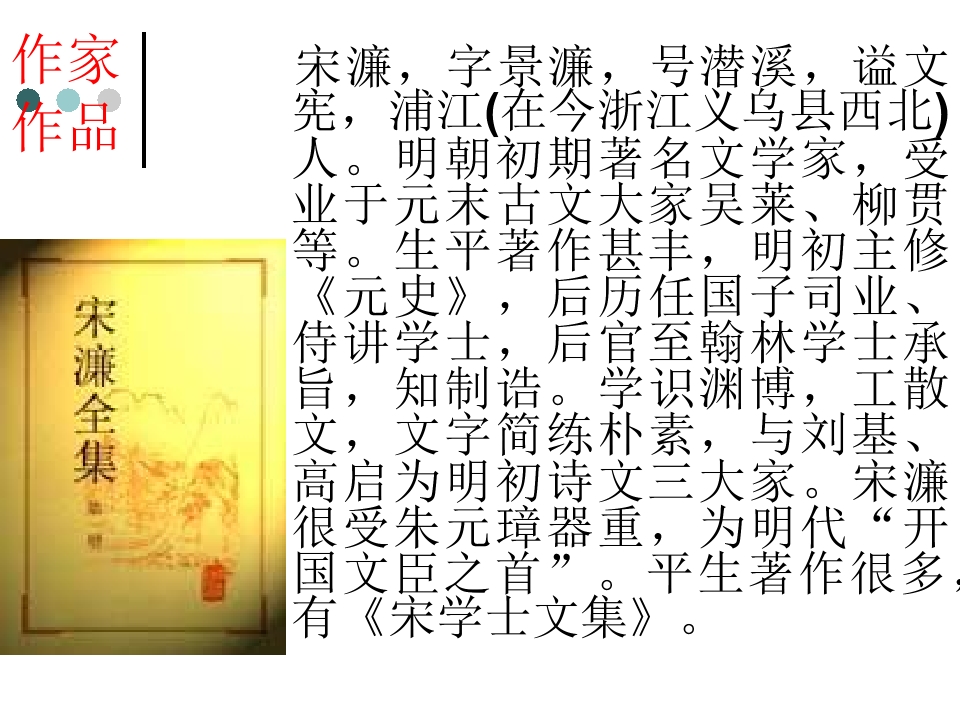 作家
作品
宋濂，字景濂，号潜溪，谥文
宪，浦江(在今浙江义乌县西北)
人。明朝初期著名文学家，受
业于元末古文大家吴莱、柳贯
等。生平著作甚丰，明初主修
《元史》，后历任国子司业、
侍讲学士，后官至翰林学士承
旨，知制诰。学识渊博，工散
文，文字简练朴素，与刘基、
高启为明初诗文三大家。宋濂
很受朱元璋器重，为明代“开
国文臣之首”。平生著作很多，
有《宋学士文集》。
宋濂全集